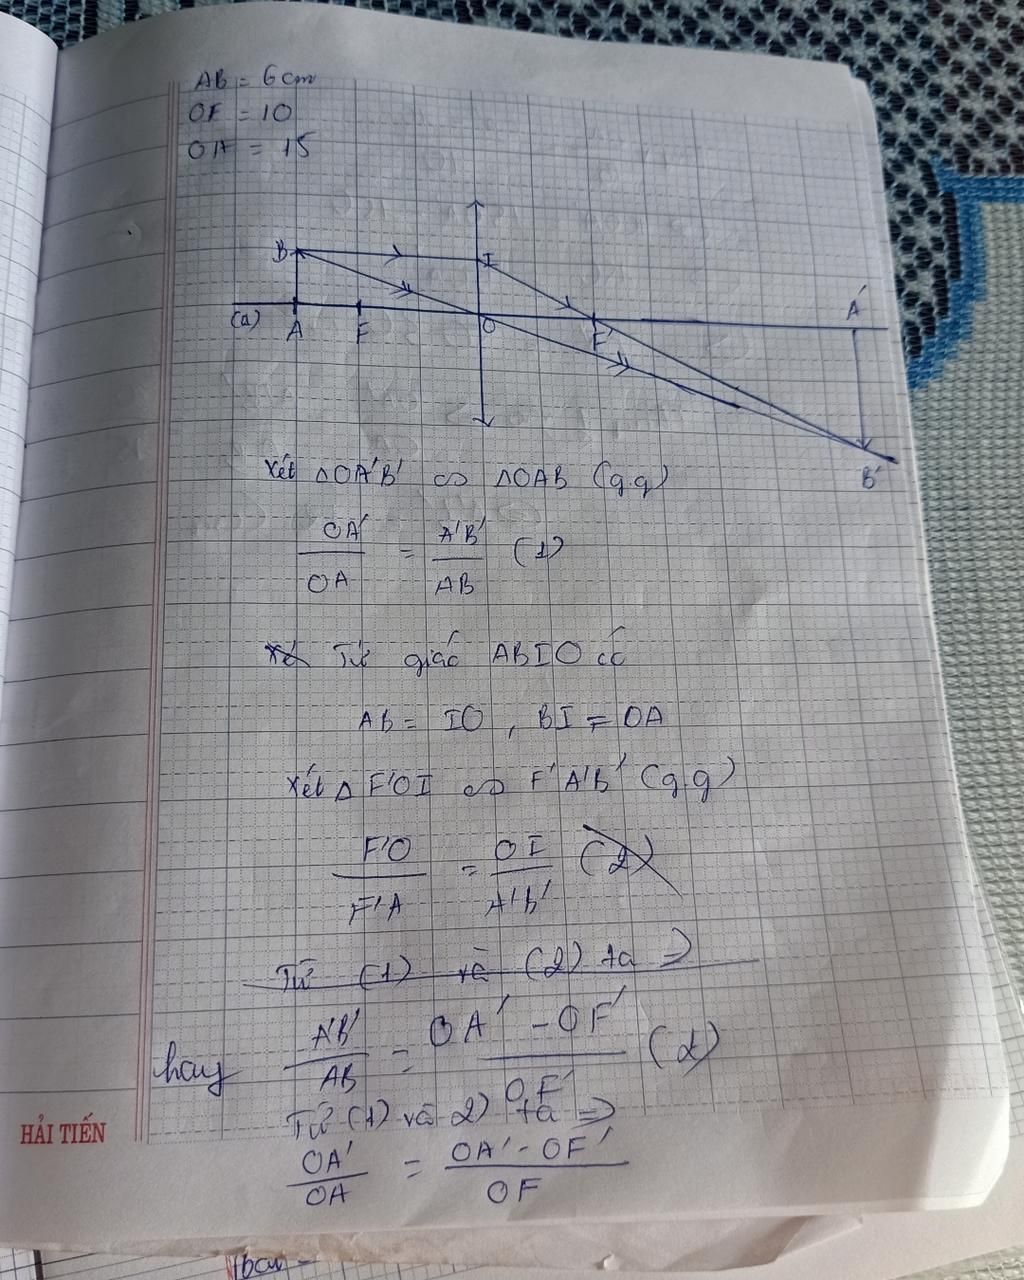 AB = 6cm
OF = 10
OA = 15
B I A'
(Δ) A F O F' B'
Xét ΔOA'B' ∽ ΔOAB (g.g)
OA'/OA = A'B'/AB (1)
Tứ giác ABIO có
AB = IO, BI = OA
Xét Δ F'OI ∽ F'A'B' (g.g)
F'O/F'A = OI/A'B' (2)
Từ (1) và (2) ta ⇒
hay A'B'/AB = OA' - OF'/OF' (2)
Từ (1) và 2) ta ⇒
OA'/OA = OA' - OF'/OF
HẢI TIẾN